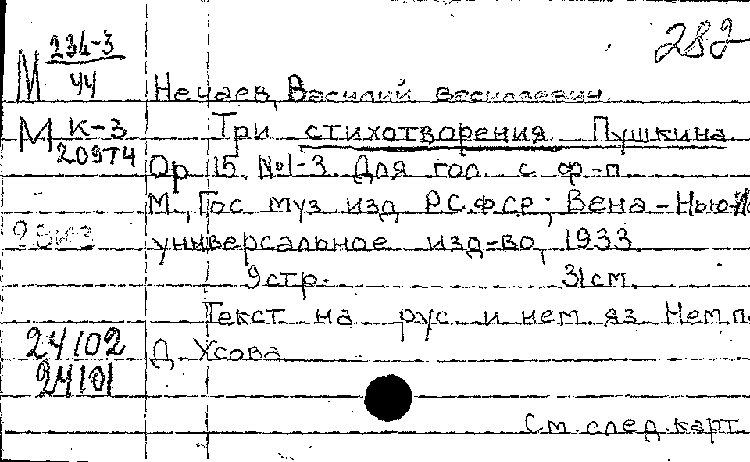 282
М 234-3
44
Нечаев, Василий Васильевич
М К-3
20974
Три стихотворения Пушкина
Ор 15. №1-3. Для гол. с ф-п.
М., Гос муз изд РСФСР; Вена-Нью-
универсальное изд-во, 1933.
9 стр. 31 см.
Текст на рус. и нем яз Нем.п.
24102
24101
См. след. карт